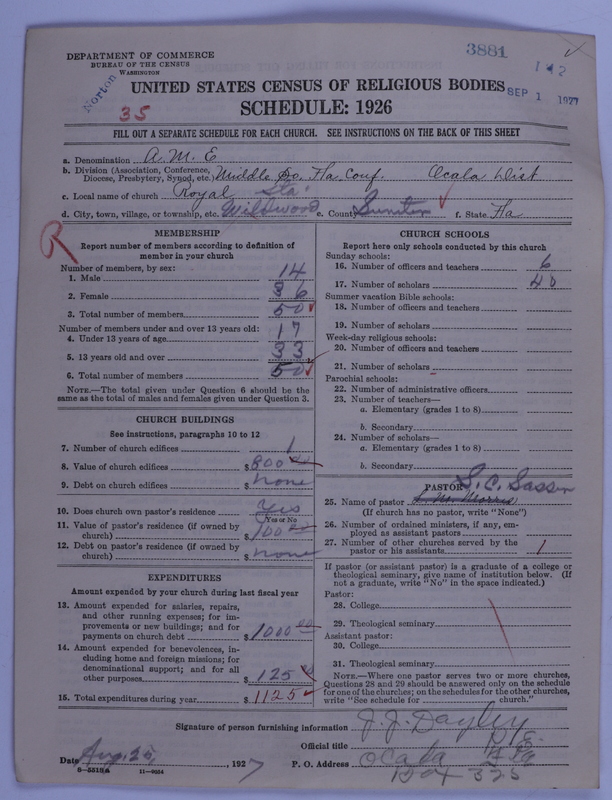 DEPARTMENT OF COMMERCE
BUREAU OF THE CENSUS
WASHINGTON
3881
142
Norton
35
UNITED STATES CENSUS OF RELIGIOUS BODIES
SEP 1 1927
SCHEDULE: 1926
FILL OUT A SEPARATE SCHEDULE FOR EACH CHURCH. SEE INSTRUCTIONS ON THE BACK OF THIS SHEET
a. Denomination A. M. E
b. Division (Association, Conference, Diocese, Presbytery, Synod, etc.) Middle Fla Conf. Ocala Dist
c. Local name of church Royal Sta.
d. City, town, village, or township, etc. Wildwood e. County Sumter f. State Fla
R
MEMBERSHIP
Report number of members according to definition of member in your church
Number of members, by sex:
1. Male 14
2. Female 36
3. Total number of members 50
Number of members under and over 13 years old:
4. Under 13 years of age 17
5. 13 years old and over 33
6. Total number of members 50
NOTE.—The total given under Question 6 should be the same as the total of males and females given under Question 3.
CHURCH BUILDINGS
See instructions, paragraphs 10 to 12
7. Number of church edifices 1
8. Value of church edifices $ 800 00
9. Debt on church edifices $ none
10. Does church own pastor's residence Yes
Yes or No
11. Value of pastor's residence (if owned by church) $ 100 00
12. Debt on pastor's residence (if owned by church) $ none
EXPENDITURES
Amount expended by your church during last fiscal year
13. Amount expended for salaries, repairs, and other running expenses; for improvements or new buildings; and for payments on church debt $ 1000 00
14. Amount expended for benevolences, including home and foreign missions; for denominational support; and for all other purposes $ 125 00
15. Total expenditures during year $ 1125
CHURCH SCHOOLS
Report here only schools conducted by this church
Sunday schools:
16. Number of officers and teachers 6
17. Number of scholars 40
Summer vacation Bible schools:
18. Number of officers and teachers
19. Number of scholars
Week-day religious schools:
20. Number of officers and teachers
21. Number of scholars
Parochial schools:
22. Number of administrative officers
23. Number of teachers—
a. Elementary (grades 1 to 8)
b. Secondary
24. Number of scholars—
a. Elementary (grades 1 to 8)
b. Secondary
PASTOR S. C. Sasser
25. Name of pastor Morris
(If church has no pastor, write "None")
26. Number of ordained ministers, if any, employed as assistant pastors
27. Number of other churches served by the pastor or his assistants 1
If pastor (or assistant pastor) is a graduate of a college or theological seminary, give name of institution below. (If not a graduate, write "No" in the space indicated.)
Pastor:
28. College
29. Theological seminary
Assistant pastor:
30. College
31. Theological seminary
NOTE.—Where one pastor serves two or more churches, Questions 28 and 29 should be answered only on the schedule for one of the churches; on the schedules for the other churches, write "See schedule for church."
Signature of person furnishing information J. J. Dayley
Official title P. E.
Date Aug. 25, 1927 P. O. Address Ocala Fla
Box 325
8—5518a 11—9034